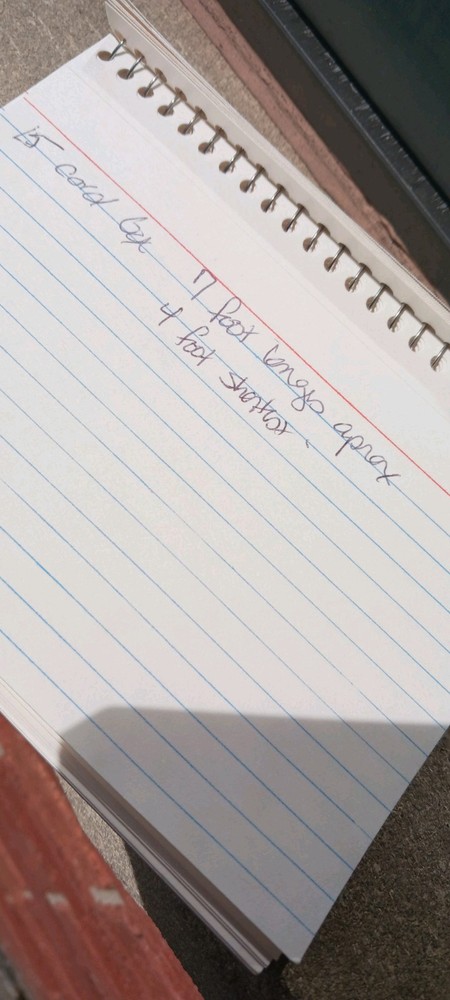 15 cord
17 foot longs aprox
4 foot shortest